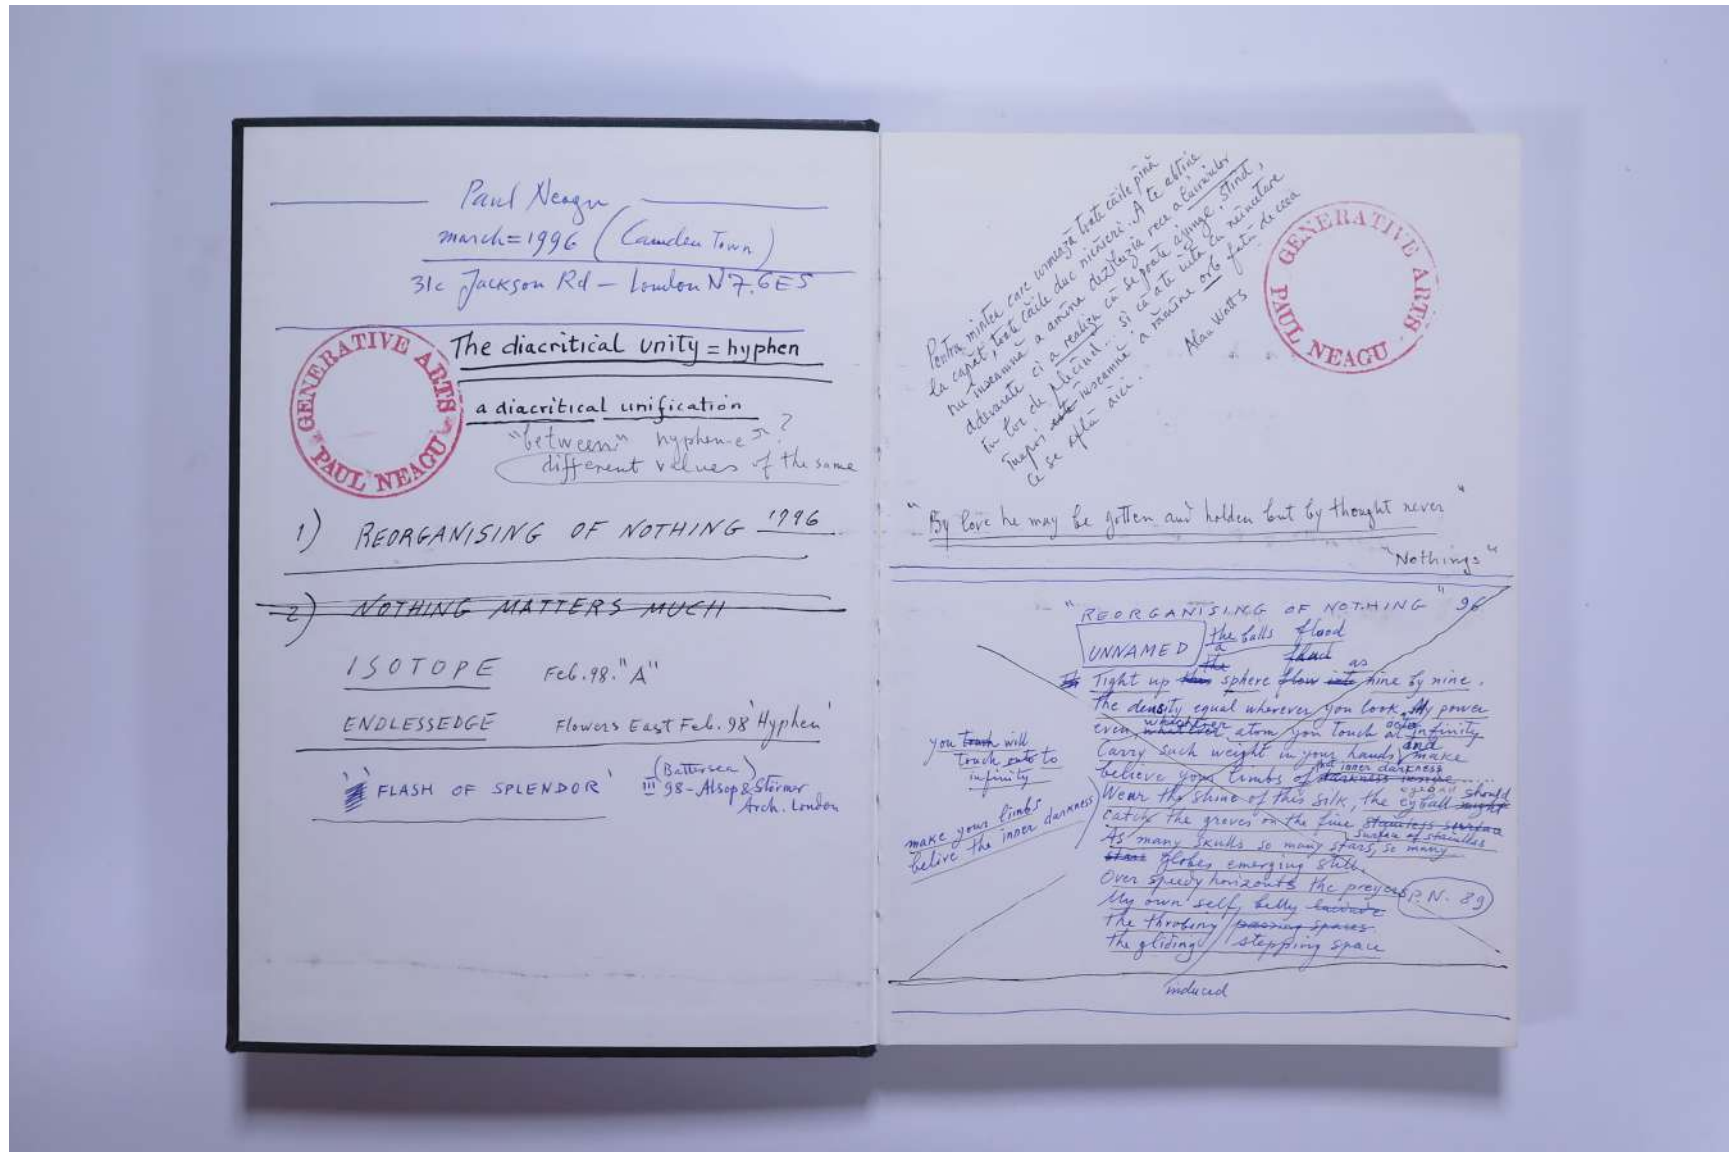 Paul Neagu
march=1996 (Camden Town)
31c Jackson Rd – London N7.6ES
GENERATIVE ARTS
PAUL NEAGU
The diacritical unity = hyphen
a diacritical unification
"between" hyphen-es?
different values of the same
1) REORGANISING OF NOTHING 1996
2) NOTHING MATTERS MUCH
ISOTOPE Feb.98."A"
ENDLESSEDGE Flowers East Feb. 98 'Hyphen'
'FLASH OF SPLENDOR' (Battersea)
III 98 – Alsop & Störmer
Arch. London
Pentru mintea care urmează toate căile pînă
la capăt, toate căile duc nicăieri. A te abține
nu înseamnă a amîna deziluzia rece a lucrurilor
adevarate ci a realiza că se poate ajunge, stînd,
în loc de plecînd... și că a te uita cu neîncetare
înapoi este înseamnă a rămîne orb față de ceea
ce se află aici...
Alan Watts
GENERATIVE ARTS
PAUL NEAGU
"By love he may be gotten and holden but by thought never"
"Nothings"
"REORGANISING OF NOTHING" 96
UNNAMED
the balls flood
a
the as
Tight up sphere flow into nine by nine.
The density equal wherever you look, My power
whichever
even whatever atom you touch at infinity
Carry such weight in your hands and make
inner darkness
believe your limbs of darkness inside.....
eyeball should
Wear the shine of this silk, the eyball might
catch the groves on the fine stainless surface
surface of stainless
As many skulls so many stars, so many
stars globes emerging still.
Over speedy horizonts the preyers
P.N. 89
My own self, belly
the throbing passing spaces
the gliding stepping space
induced
you touch will
touch onto to
infinity
make your limbs
belive the inner darkness